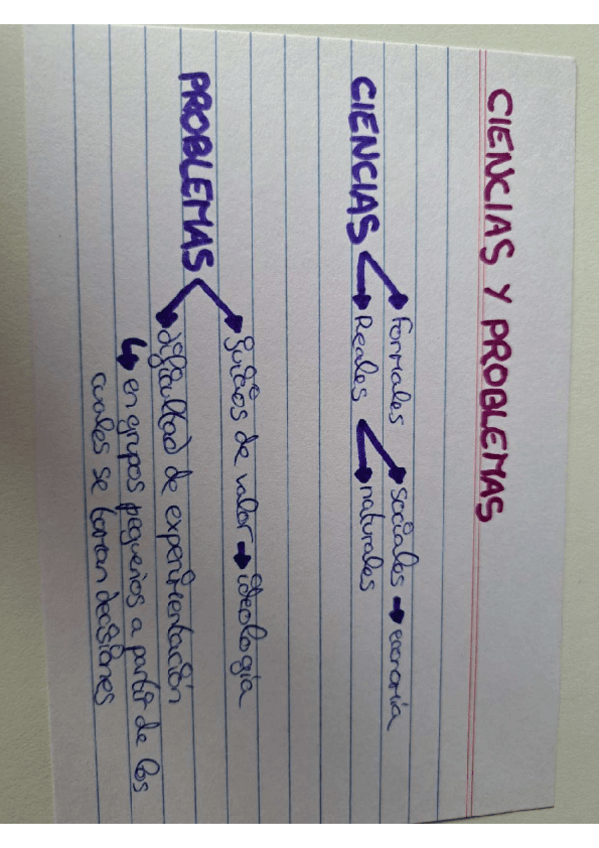 CIENCIAS Y PROBLEMAS
CIENCIAS → formales
→ Reales → sociales → economía
→ naturales
PROBLEMAS → juicios de valor → ideología
→ dificultad de experimentación
↳ en grupos pequeños a partir de los
cuales se toman decisiones